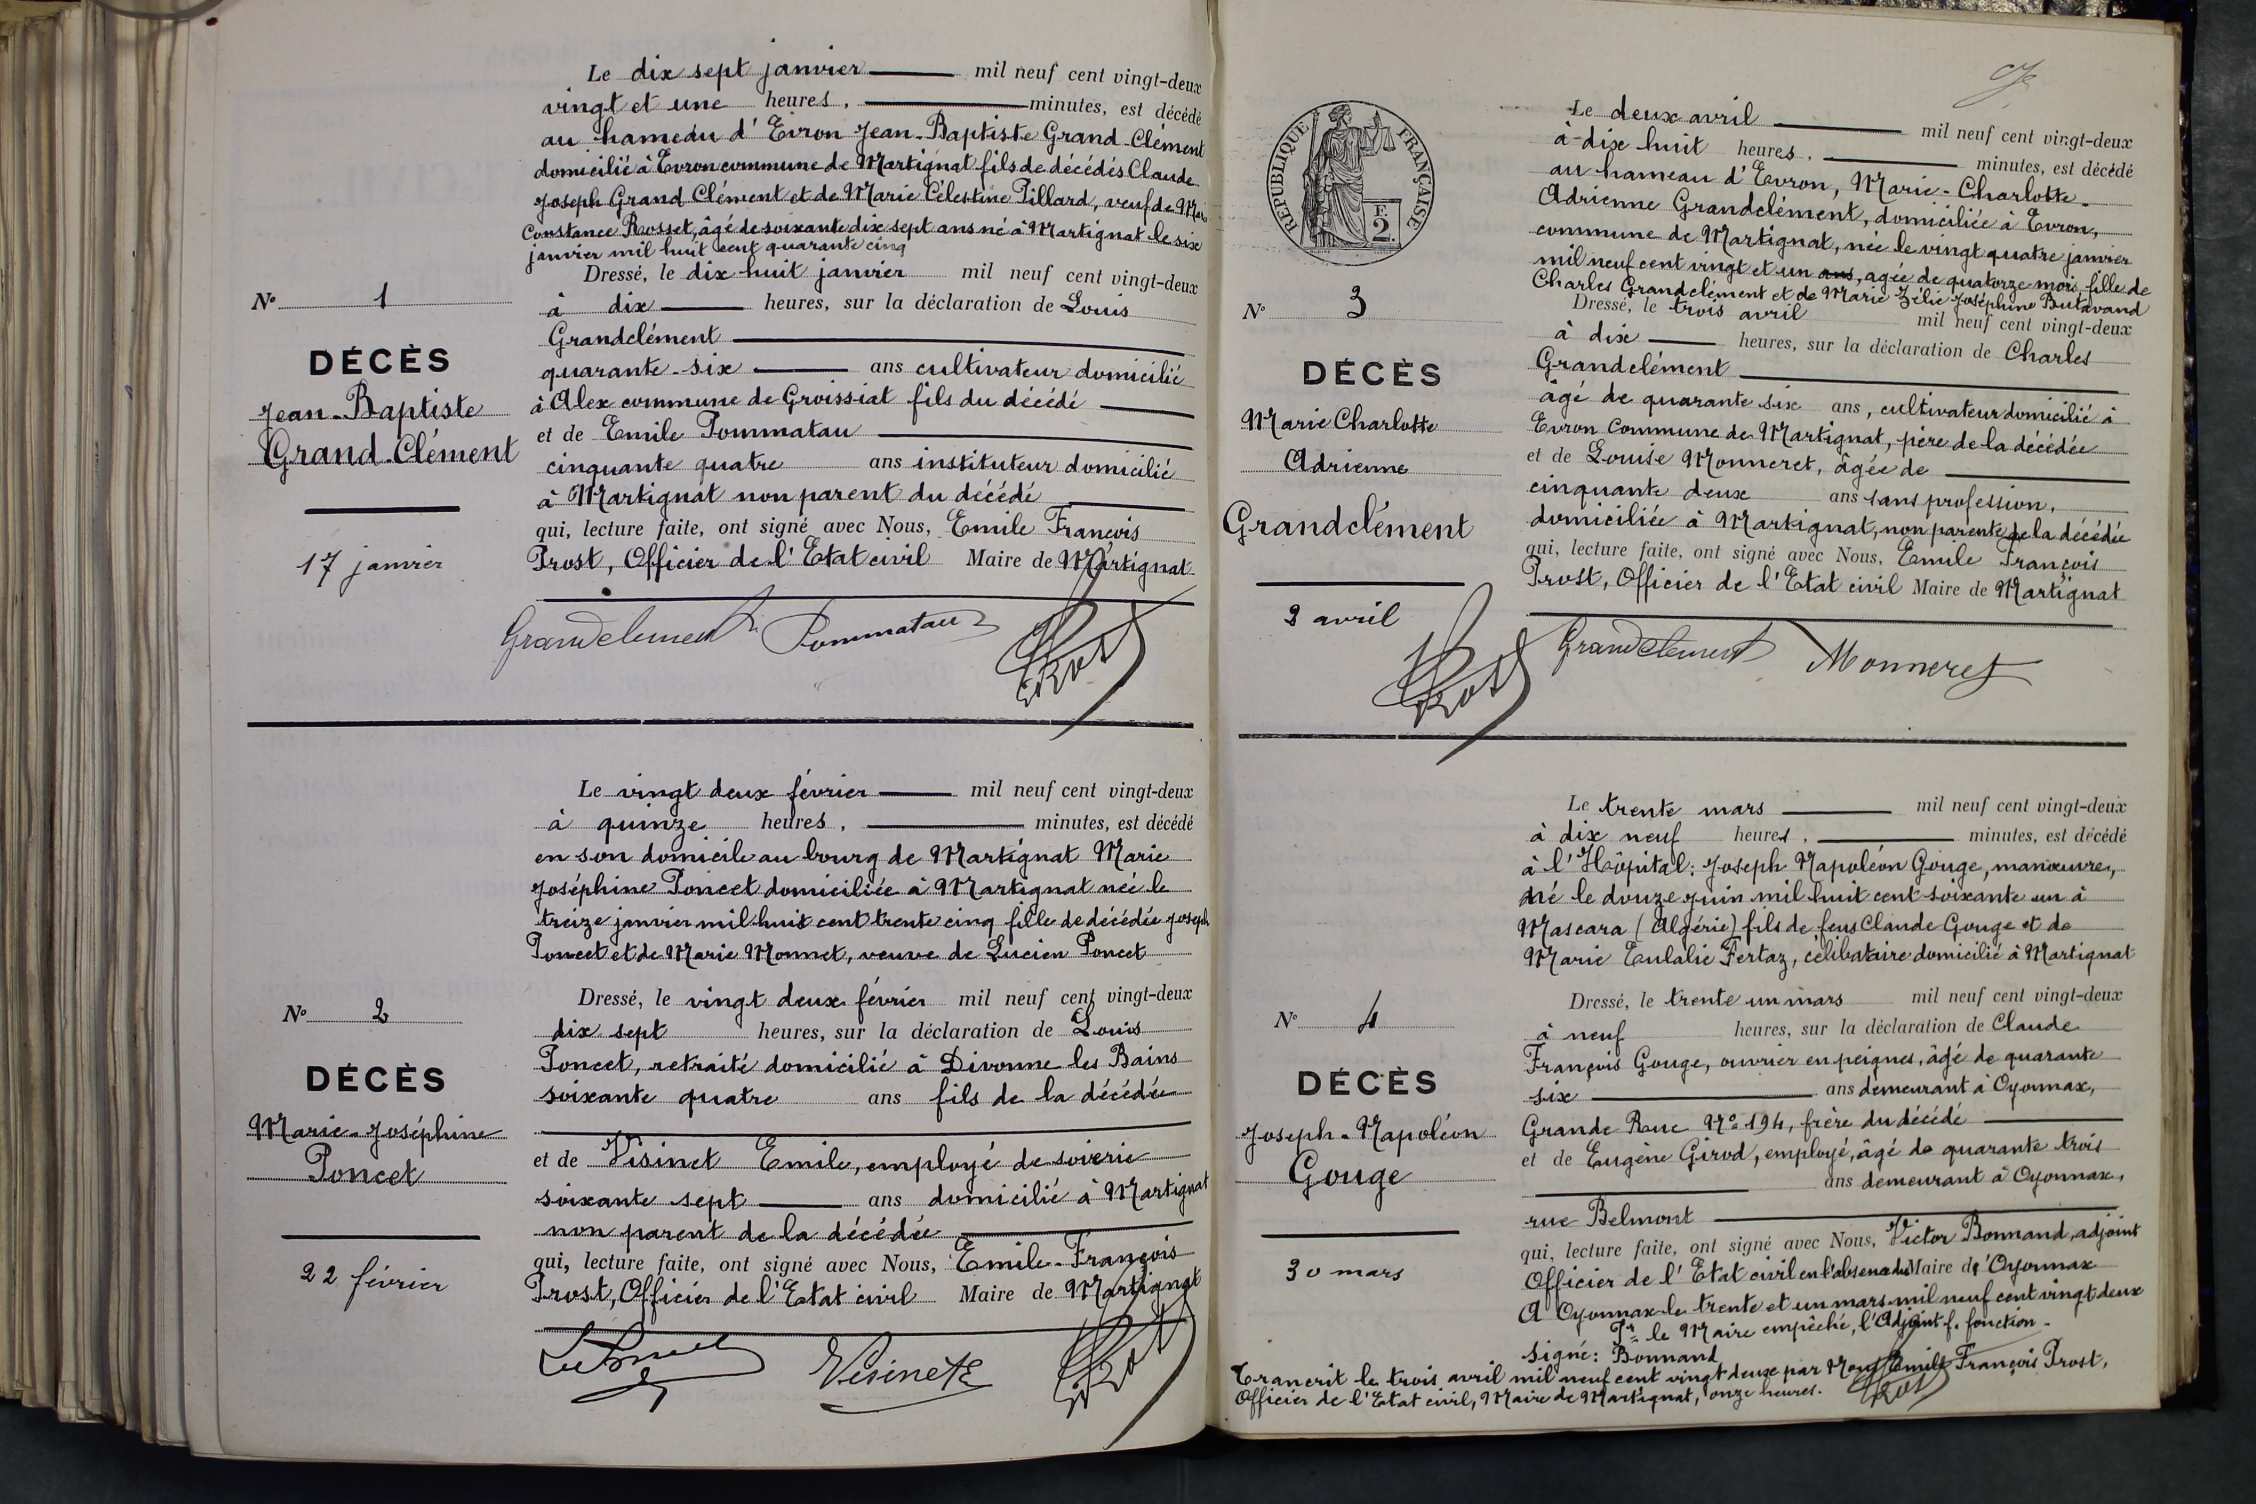 Le dix sept janvier mil neuf cent vingt-deux
vingt et une heures, minutes, est décédé
au hameau d'Evron Jean-Baptiste Grand-Clément
domicilié à Evron commune de Martignat fils de décédés Claude
Joseph Grand Clément et de Marie Célestine Pillard, veuf de Marie
Constance Rosset, âgé de soixante dix sept ans né à Martignat le six
janvier mil huit cent quarante cinq
Dressé, le dix huit janvier mil neuf cent vingt-deux
à dix heures, sur la déclaration de Louis
Grandclément
quarante-six ans cultivateur domicilié
à Alex commune de Groissiat fils du décédé
et de Emile Pommatau
cinquante quatre ans instituteur domicilié
à Martignat non parent du décédé
qui, lecture faite, ont signé avec Nous, Emile François
Prost, Officier de l'Etat civil Maire de Martignat
Grandclement Pommatau Prost
N° 1
DÉCÈS
Jean-Baptiste
Grand-Clément
17 janvier
Le vingt deux février mil neuf cent vingt-deux
à quinze heures, minutes, est décédé
en son domicile au bourg de Martignat Marie
Joséphine Poncet domiciliée à Martignat née le
treize janvier mil huit cent trente cinq fille de décédée Joseph
Poncet et de Marie Monnet, veuve de Lucien Poncet
Dressé, le vingt deux février mil neuf cent vingt-deux
dix sept heures, sur la déclaration de Louis
Poncet, retraité domicilié à Divonne les Bains
soixante quatre ans fils de la décédée
et de Visinet Emile, employé de soierie
soixante sept ans domicilié à Martignat
non parent de la décédée
qui, lecture faite, ont signé avec Nous, Emile-François
Prost, Officier de l'Etat civil Maire de Martignat
Visinet E Prost
N° 2
DÉCÈS
Marie-Joséphine
Poncet
22 février
RÉPUBLIQUE FRANÇAISE
E
2
Le deux avril mil neuf cent vingt-deux
à dix huit heures, minutes, est décédé
au hameau d'Evron, Marie-Charlotte-
Adrienne Grandclément, domiciliée à Evron,
commune de Martignat, née le vingt quatre janvier
mil neuf cent vingt et un ans, agée de quatorze mois, fille de
Charles Grandclément et de Marie Zélie Joséphine Butavand
Dressé, le trois avril mil neuf cent vingt-deux
à dix heures, sur la déclaration de Charles
Grandclément
âgé de quarante six ans, cultivateur domicilié à
Evron Commune de Martignat, père de la décédée
et de Louise Monneret, âgée de
cinquante deux ans sans profession,
domiciliée à Martignat, non parente de la décédée
qui, lecture faite, ont signé avec Nous, Emile François
Prost, Officier de l'Etat civil Maire de Martignat
Prost Grandclement Monneret
N° 3
DÉCÈS
Marie Charlotte
Adrienne
Grandclément
2 avril
Le trente mars mil neuf cent vingt-deux
à dix neuf heures, minutes, est décédé
à l'Hôpital: Joseph Napoléon Gouge, manœuvre,
né le douze juin mil huit cent soixante un à
Mascara (Algérie) fils de feus Claude Gouge et de
Marie Eulalie Fertaz, célibataire domicilié à Martignat
Dressé, le trente un mars mil neuf cent vingt-deux
à neuf heures, sur la déclaration de Claude
François Gouge, ouvrier en peignes, âgé de quarante
six ans demeurant à Oyonnax,
Grande Rue N° 194, frère du décédé
et de Eugène Girod, employé, âgé de quarante trois
ans demeurant à Oyonnax,
rue Belmont
qui, lecture faite, ont signé avec Nous, Victor Bonnand, adjoint
Officier de l'Etat civil en l'absence du Maire d'Oyonnax
A Oyonnax le trente et un mars mil neuf cent vingt deux
Pr le Maire empêché, l'Adjoint f. fonction-
signé: Bonnand
Trancrit le trois avril mil neuf cent vingt deux par Nous Emile François Prost,
Officier de l'Etat civil, Maire de Martignat, onze heures. Prost
N° 4
DÉCÈS
Joseph-Napoléon
Gouge
30 mars